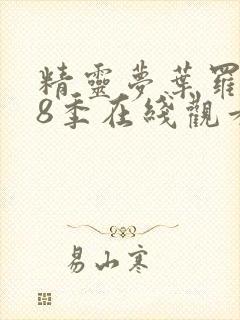 精靈夢葉羅
8季在綫觀
易山寒